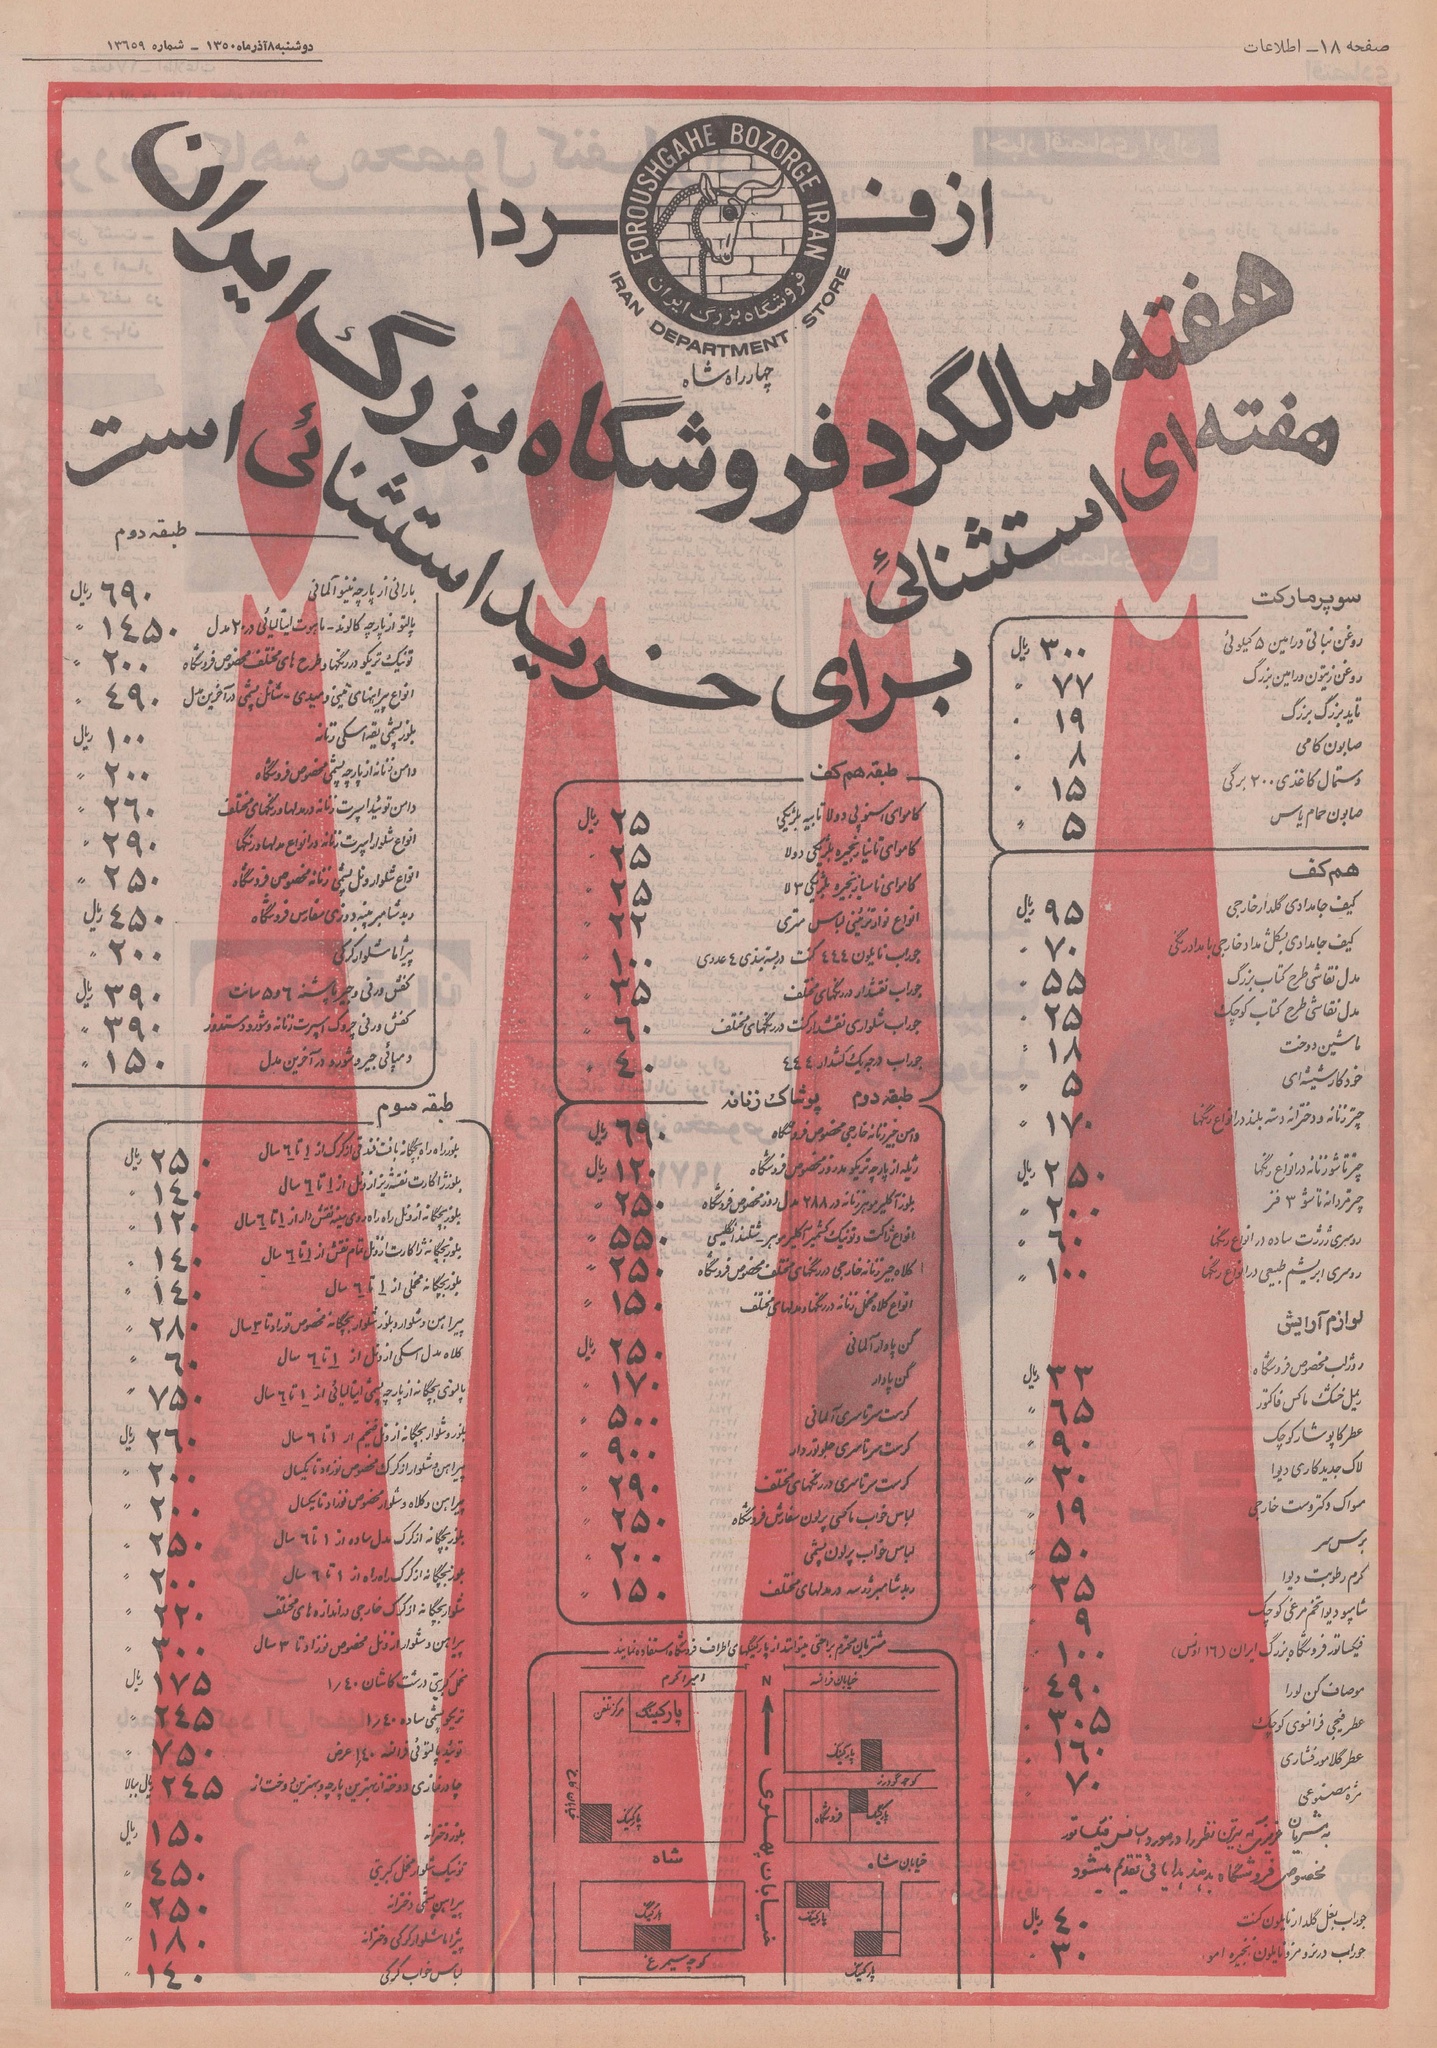 صفحه ۱۸ـ اطلاعات
دوشنبه ۸ آذر ماه ۱۳۵۰ ـ شماره ۱۳۶۵۹
از فــردا
FOROUSHGAHE BOZORGE IRAN
فروشگاه بزرگ ایران
IRAN DEPARTMENT STORE
چهارراه شاه
هفته سالگرد فروشگاه بزرگ ایران
هفته ای استثنائی
برای خرید استثنائی است
سوپر مارکت
روغن نباتی ورامین ۵ کیلوئی ۳۰۰ ریال
روغن زیتون ورامین بزرگ ۷۷ "
تاید بزرگ بزرگ ۱۹ "
صابون کامی ۸ "
دستمال کاغذی ۲۰۰ برگی ۱۵ "
صابون حمام یاس ۵ "
هم کف
کیف جامدادی گلدار خارجی ۹۵ ریال
کیف جامدادی بشکل مداد خارجی با مداد رنگی ۷۰ "
مدل نقاشی طرح کتاب بزرگ ۵۵ "
مدل نقاشی طرح کتاب کوچک ۲۵ "
ماشین دوخت ۱۸ "
خودکار شیشه ای ۵ "
چتر زنانه و دخترانه دسته بلند در انواع رنگها ۱۷۰ "
چتر تاشو زنانه در انواع رنگها ۲۵۰ ریال
چتر مردانه تاشو ۳ فنر ۲۰۰ "
روسری ژرژت ساده در انواع رنگها ۶۰ "
روسری ابریشم طبیعی در انواع رنگها ۱۰۰ "
لوازم آرایش
روژلب مخصوص فروشگاه ۳۳ ریال
ریمل خشک ماکس فاکتور ۶۵ "
عطر کاپوشار کوچک ۹۰ "
لاک جدید کاری دیوا ۳۰ "
مسواک دکتر وست خارجی ۱۹ "
برس سر ۵۰ "
کرم رطوبت دیوا ۳۵ "
شامپو دیوا تخم مرغی کوچک ۹ "
فیکساتور فروشگاه بزرگ ایران (۱۶ اونس) ۱۰۰ "
موصاف کن لورا ۴۹۰ "
عطر فیجی فرانسوی کوچک ۳۰۵ "
عطر گلامور فشاری ۱۶۰ "
مژه مصنوعی ۷۰ "
مخصوص فروشگاه بدهند هدایائی تقدیم میشود
جوراب بغل گلدار نایلون کنت ۴۰ ریال
۳۰ "
طبقه هم کف
کاموای اسنوپی دولا تابیه بلژیکی ۲۵ ریال
کاموای تانیا زنجیره بلژیکی دولا ۲۵ "
۲۵ "
انواع نوار تزئینی لباس متری ۲۲ "
جوراب نایلون ۴۴۴ کنت در بسته بندی ۴ عددی ۱۰۰ "
جوراب نقشدار در رنگهای مختلف ۳۵ "
جوراب شلواری نقشدار کنت در رنگهای مختلف ۶۰ "
۴۰ "
طبقه دوم پوشاک زنانه
دامن جیر زنانه خارجی مخصوص فروشگاه ۶۹۰ ریال
ژیله از پارچه تریکو مد روز مخصوص فروشگاه ۱۲۰ ریال
بلوز آکلیر موهر زنانه در ۲۸۸ مدل روز مخصوص فروشگاه ۲۵۰ "
۵۵۰ "
کلاه جیر زنانه خارجی در رنگهای مختلف مخصوص فروشگاه ۲۵۰ "
انواع کلاه مخمل زنانه در رنگها و مدلهای مختلف ۱۵۰ "
گن پادار آلمانی ۲۵۰ ریال
گن پادار ۱۷۰ "
کرست سرتاسری آلمانی ۵۰۰ "
کرست سرتاسری جلو تور دار ۹۰۰ "
کرست سرتاسری در رنگهای مختلف ۲۹۰ "
لباس خواب باکتی پرلون سفارش فروشگاه ۲۵۰ "
لباس خواب پرلون پشمی ۲۰۰ "
ربدشامبر ژرسه در مدلهای مختلف ۱۵۰ "
مشتریان محترم براحتی میتوانند از پارکینگهای اطراف فروشگاه استفاده نمایند
امیر اکرم
مرکز تلفن
پارکینگ
N
خیابان فرانسه
پارکینگ
کوچه گودرز
پارکینگ
فروشگاه
پارکینگ
خیابان پهلوی
شاه
خیابان شاه
پارکینگ
پارکینگ
پارکینگ
کوچه سیمرغ
طبقه دوم
بارانی از پارچه نینو آلمانی ۶۹۰ ریال
پالتو از پارچه کالوند ـ ماهوت ایتالیائی در ۲۰ مدل ۱۴۵۰ "
تونیک تریکو در رنگها و طرح های مختلف مخصوص فروشگاه ۲۰۰ "
انواع پیراهنهای مینی و میدی ـ شانل پشمی در آخرین مدل ۴۹۰ "
بلوز پشمی یقه اسکی زنانه ۱۰۰ ریال
دامن زنانه از پارچه پشمی مخصوص فروشگاه ۲۰۰ "
دامن توئید اسپرت زنانه در مدلها و رنگهای مختلف ۲۶۰ "
انواع شلوار اسپرت زنانه در انواع مدلها و رنگها ۲۹۰ "
انواع شلوار ونل پشمی زنانه مخصوص فروشگاه ۲۵۰ "
ربدشامبر پنبه دوزی سفارس فروشگاه ۴۵۰ ریال
پیژاما شلوار کرکی ۲۰۰ "
کفش ورنی و جیر پاشنه ۶ و ۵ سانت ۳۹۰ ریال
کفش ورنی چروک اسپرت زنانه و شورو دستدوز ۳۹۰ "
دمپائی جیر و شورو در آخرین مدل ۱۵۰ "
طبقه سوم
بلوز راه راه بچگانه بافت فندقی از کرک از ۱ تا ۶ سال ۲۵۰ ریال
بلوز ژاکارت نقشه ریز از ونل از ۱ تا ۶ سال ۱۴۰ "
بلوز بچگانه از ونل راه راه روی سینه نقش دار از ۱ تا ۶ سال ۱۲۰ "
بلوز بچگانه ژاکارت از ونل تمام نقش از ۱ تا ۶ سال ۱۴۰ "
بلوز بچگانه مخملی از ۱ تا ۶ سال ۱۴۰ "
پیراهن و شلوار و بلوز شلوار بچگانه مخصوص نوزاد تا ۳ سال ۲۸۰ "
کلاه مدل اسکی از ونل از ۱ تا ۶ سال ۶۰ "
پالتوی بچگانه از پارچه پشمی ایتالیائی از ۱ تا ۶ سال ۷۵۰ "
بلوز و شلوار بچگانه از ونل ضخیم از ۱ تا ۶ سال ۲۶۰ ریال
پیراهن و شلوار از کرک مخصوص نوزاد تا یکسال ۲۰۰ "
پیراهن و کلاه و شلوار مخصوص نوزاد تا یکسال ۲۰۰ "
بلوز بچگانه از کرک مدل ساده از ۱ تا ۶ سال ۲۵۰ "
بلوز بچگانه از کرک راه راه از ۱ تا ۶ سال ۲۰۰ "
شلوار بچگانه از کرک خارجی در اندازه های مختلف ۲۲۰ "
پیراهن و شلوار از ونل مخصوص نوزاد تا ۳ سال ۳۰۰ "
مخمل کبریتی درشت کاشان ۱/۴۰ ۱۷۵ ریال
تریکو پشمی ساده ۱/۴۰ ۲۴۵ "
توئید پالتوئی فرانسه ۱/۴۰ عرض ۷۵۰ "
چادر نمازی دوخته از بهترین پارچه و بهترین دوخت از ۲۴۵ ریال ببالا
بلوز دخترانه ۱۵۰ ریال
تونیک شلوار مخمل کبریتی ۴۵۰ "
پیراهن پشمی دخترانه ۲۵۰ "
پیژاما شلوار کرکی دخترانه ۱۸۰ "
لباس خواب کرکی ۱۴۰ "